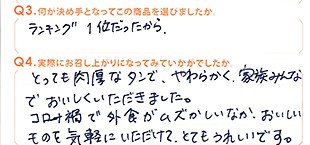 Q3.何が決め手となってこの商品を選びましたか。
ランキング 1位だったから。
Q4.実際にお召し上がりになってみていかがでしたか。
とっても肉厚なタンで、やわらかく、家族みんな
でおいしくいただきました。
コロナ禍で外食がムズかしいなか、おいしい
ものを気軽にいただけて、とてもうれしいです。